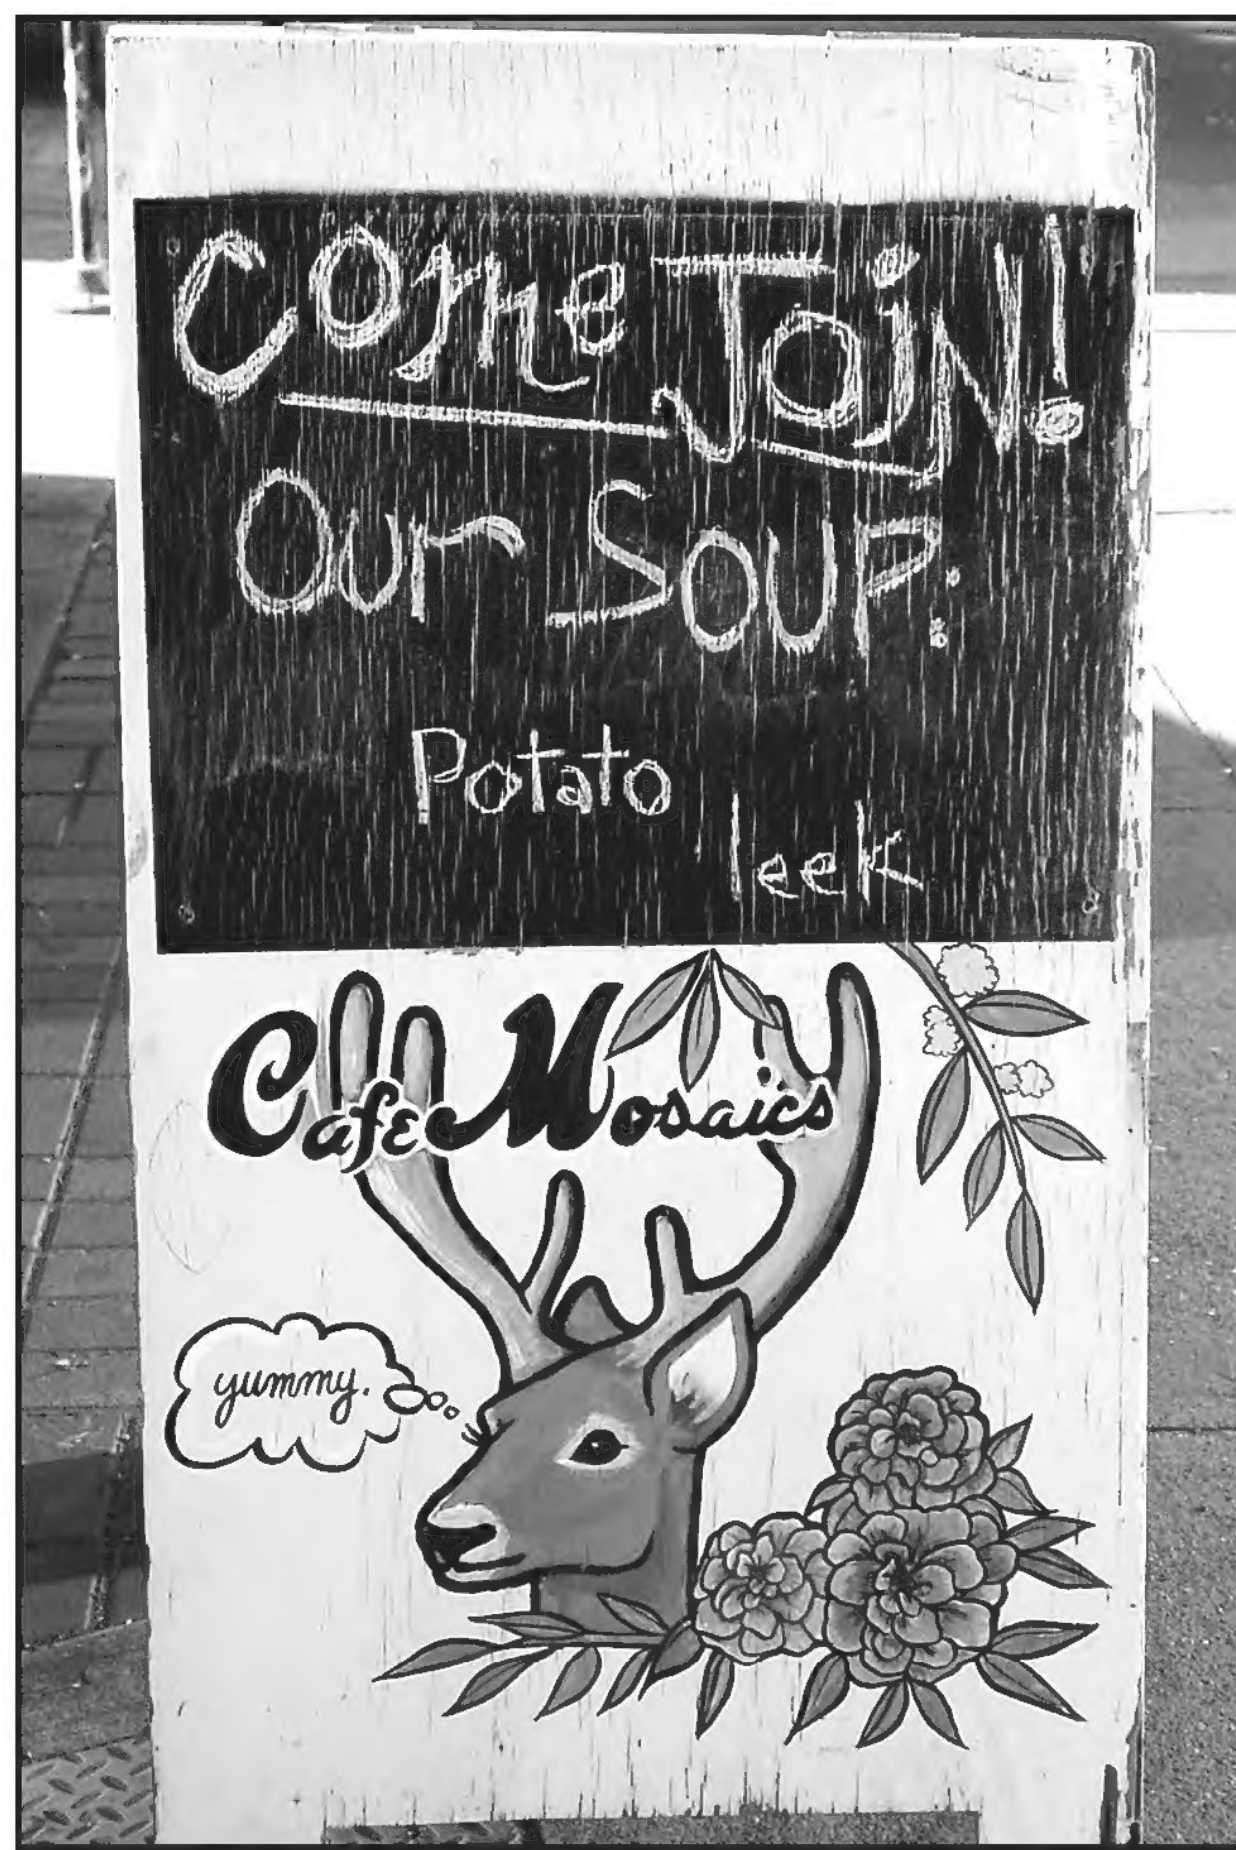 Come Join!
Our Soup:
Potato
leek
Cafe Mosaics
yummy.